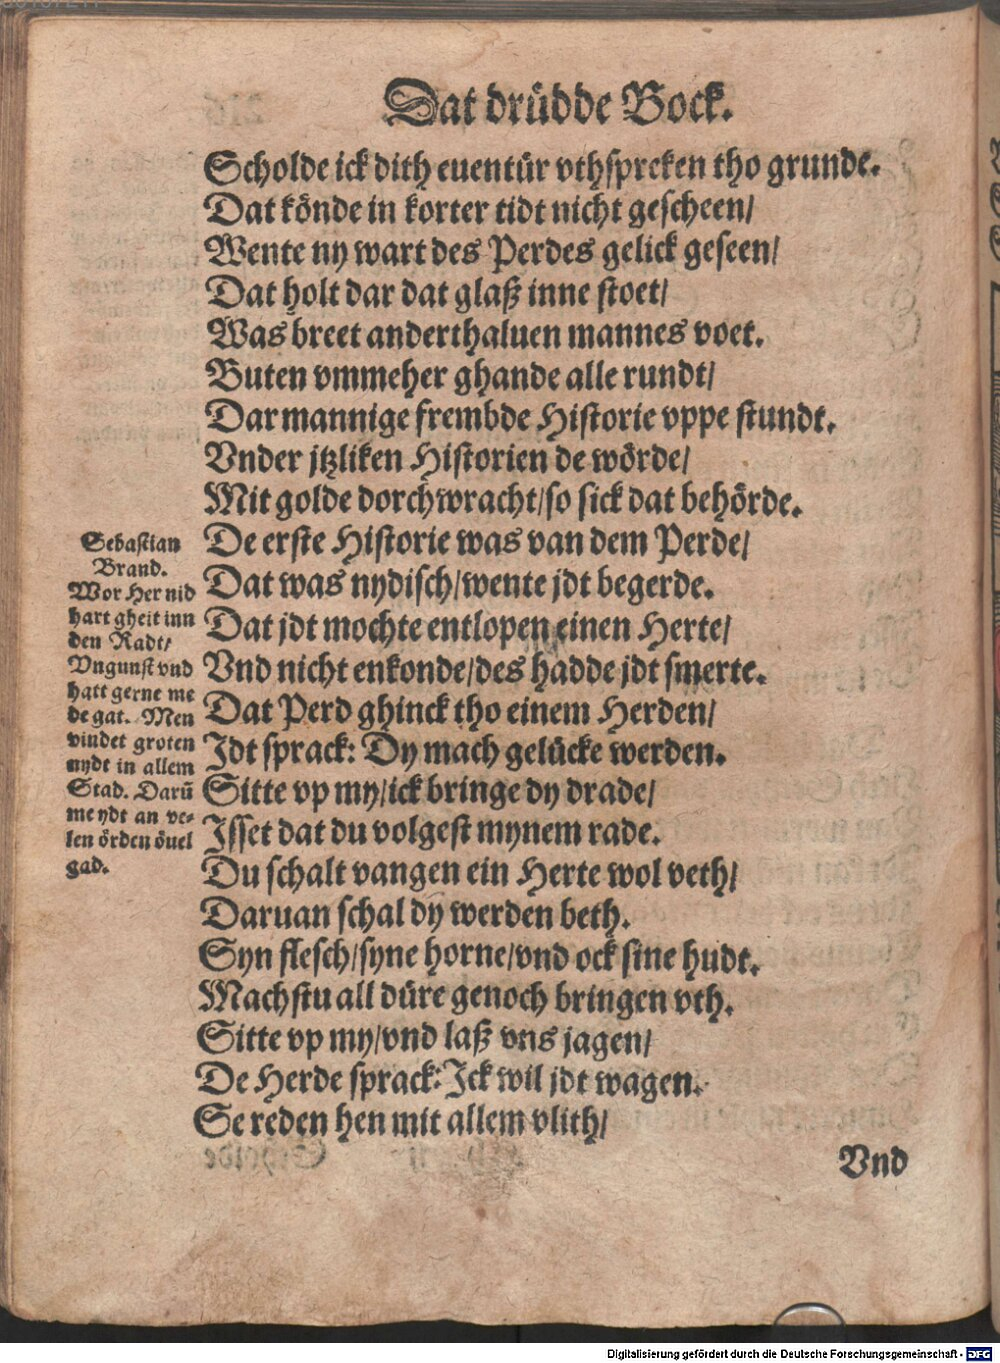 Dat drüdde Bock.
Scholde ick dith euentür vthspreken tho grunde.
Dat könde in korter tidt nicht gescheen/
Wente ny wart des Perdes gelick geseen/
Dat holt dar dat glaß inne stoet/
Was breet anderthaluen mannes voet.
Buten vmmeher ghande alle rundt/
Dar mannige frembde Historie vppe stundt.
Vnder jtzliken Historien de wörde/
Mit golde dorchwracht/so sick dat behörde.
De erste Historie was van dem Perde/
Dat was nydisch/wente jdt begerde.
Dat jdt mochte entlopen einen Herte/
Vnd nicht enkonde/des hadde jdt smerte.
Dat Perd ghinck tho einem Herden/
Jdt sprack: Dy mach gelücke werden.
Sitte vp my/ick bringe dy drade/
Jsset dat du volgest mynem rade.
Du schalt vangen ein Herte wol veth/
Daruan schal dy werden beth.
Syn flesch/syne horne/vnd ock sine hudt.
Machstu all düre genoch bringen vth.
Sitte vp my/vnd laß vns jagen/
De Herde sprack: Jck wil jdt wagen.
Se reden hen mit allem vlith/
Vnd
Sebastian
Brand.
Wor Her nid
hart gheit inn
den Radt/
Vngunst vnd
hatt gerne me
de gat. Men
vindet groten
nydt in allem
Stad. Darū
me ydt an ve-
len örden öuel
gad.
Digitalisierung gefördert durch die Deutsche Forschungsgemeinschaft - DFG